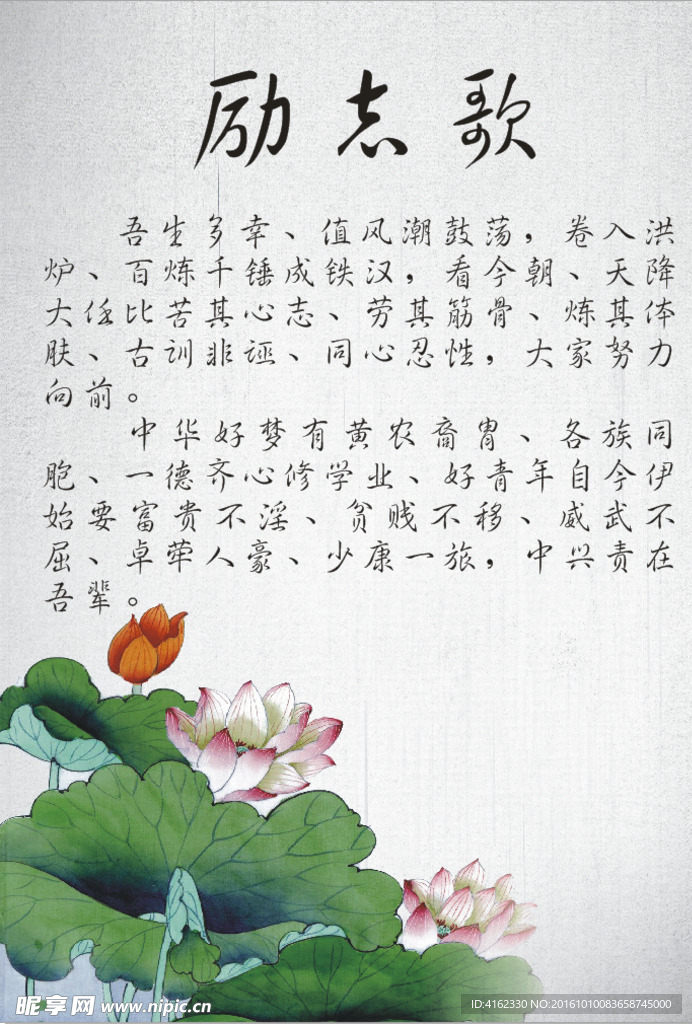 励志歌
吾生多幸、值风潮鼓荡，卷入洪
炉、百炼千锤成铁汉，看今朝、天降
大任比苦其心志、劳其筋骨、炼其体
肤、古训非诬、同心忍性，大家努力
向前。
中华好梦有黄农裔胄、各族同
胞、一德齐心修学业、好青年自今伊
始要富贵不淫、贫贱不移、威武不
屈、卓荦人豪、少康一旅，中兴责在
吾辈。
昵享网 www.nipic.cn
ID:4162330 NO:20161010083658745000